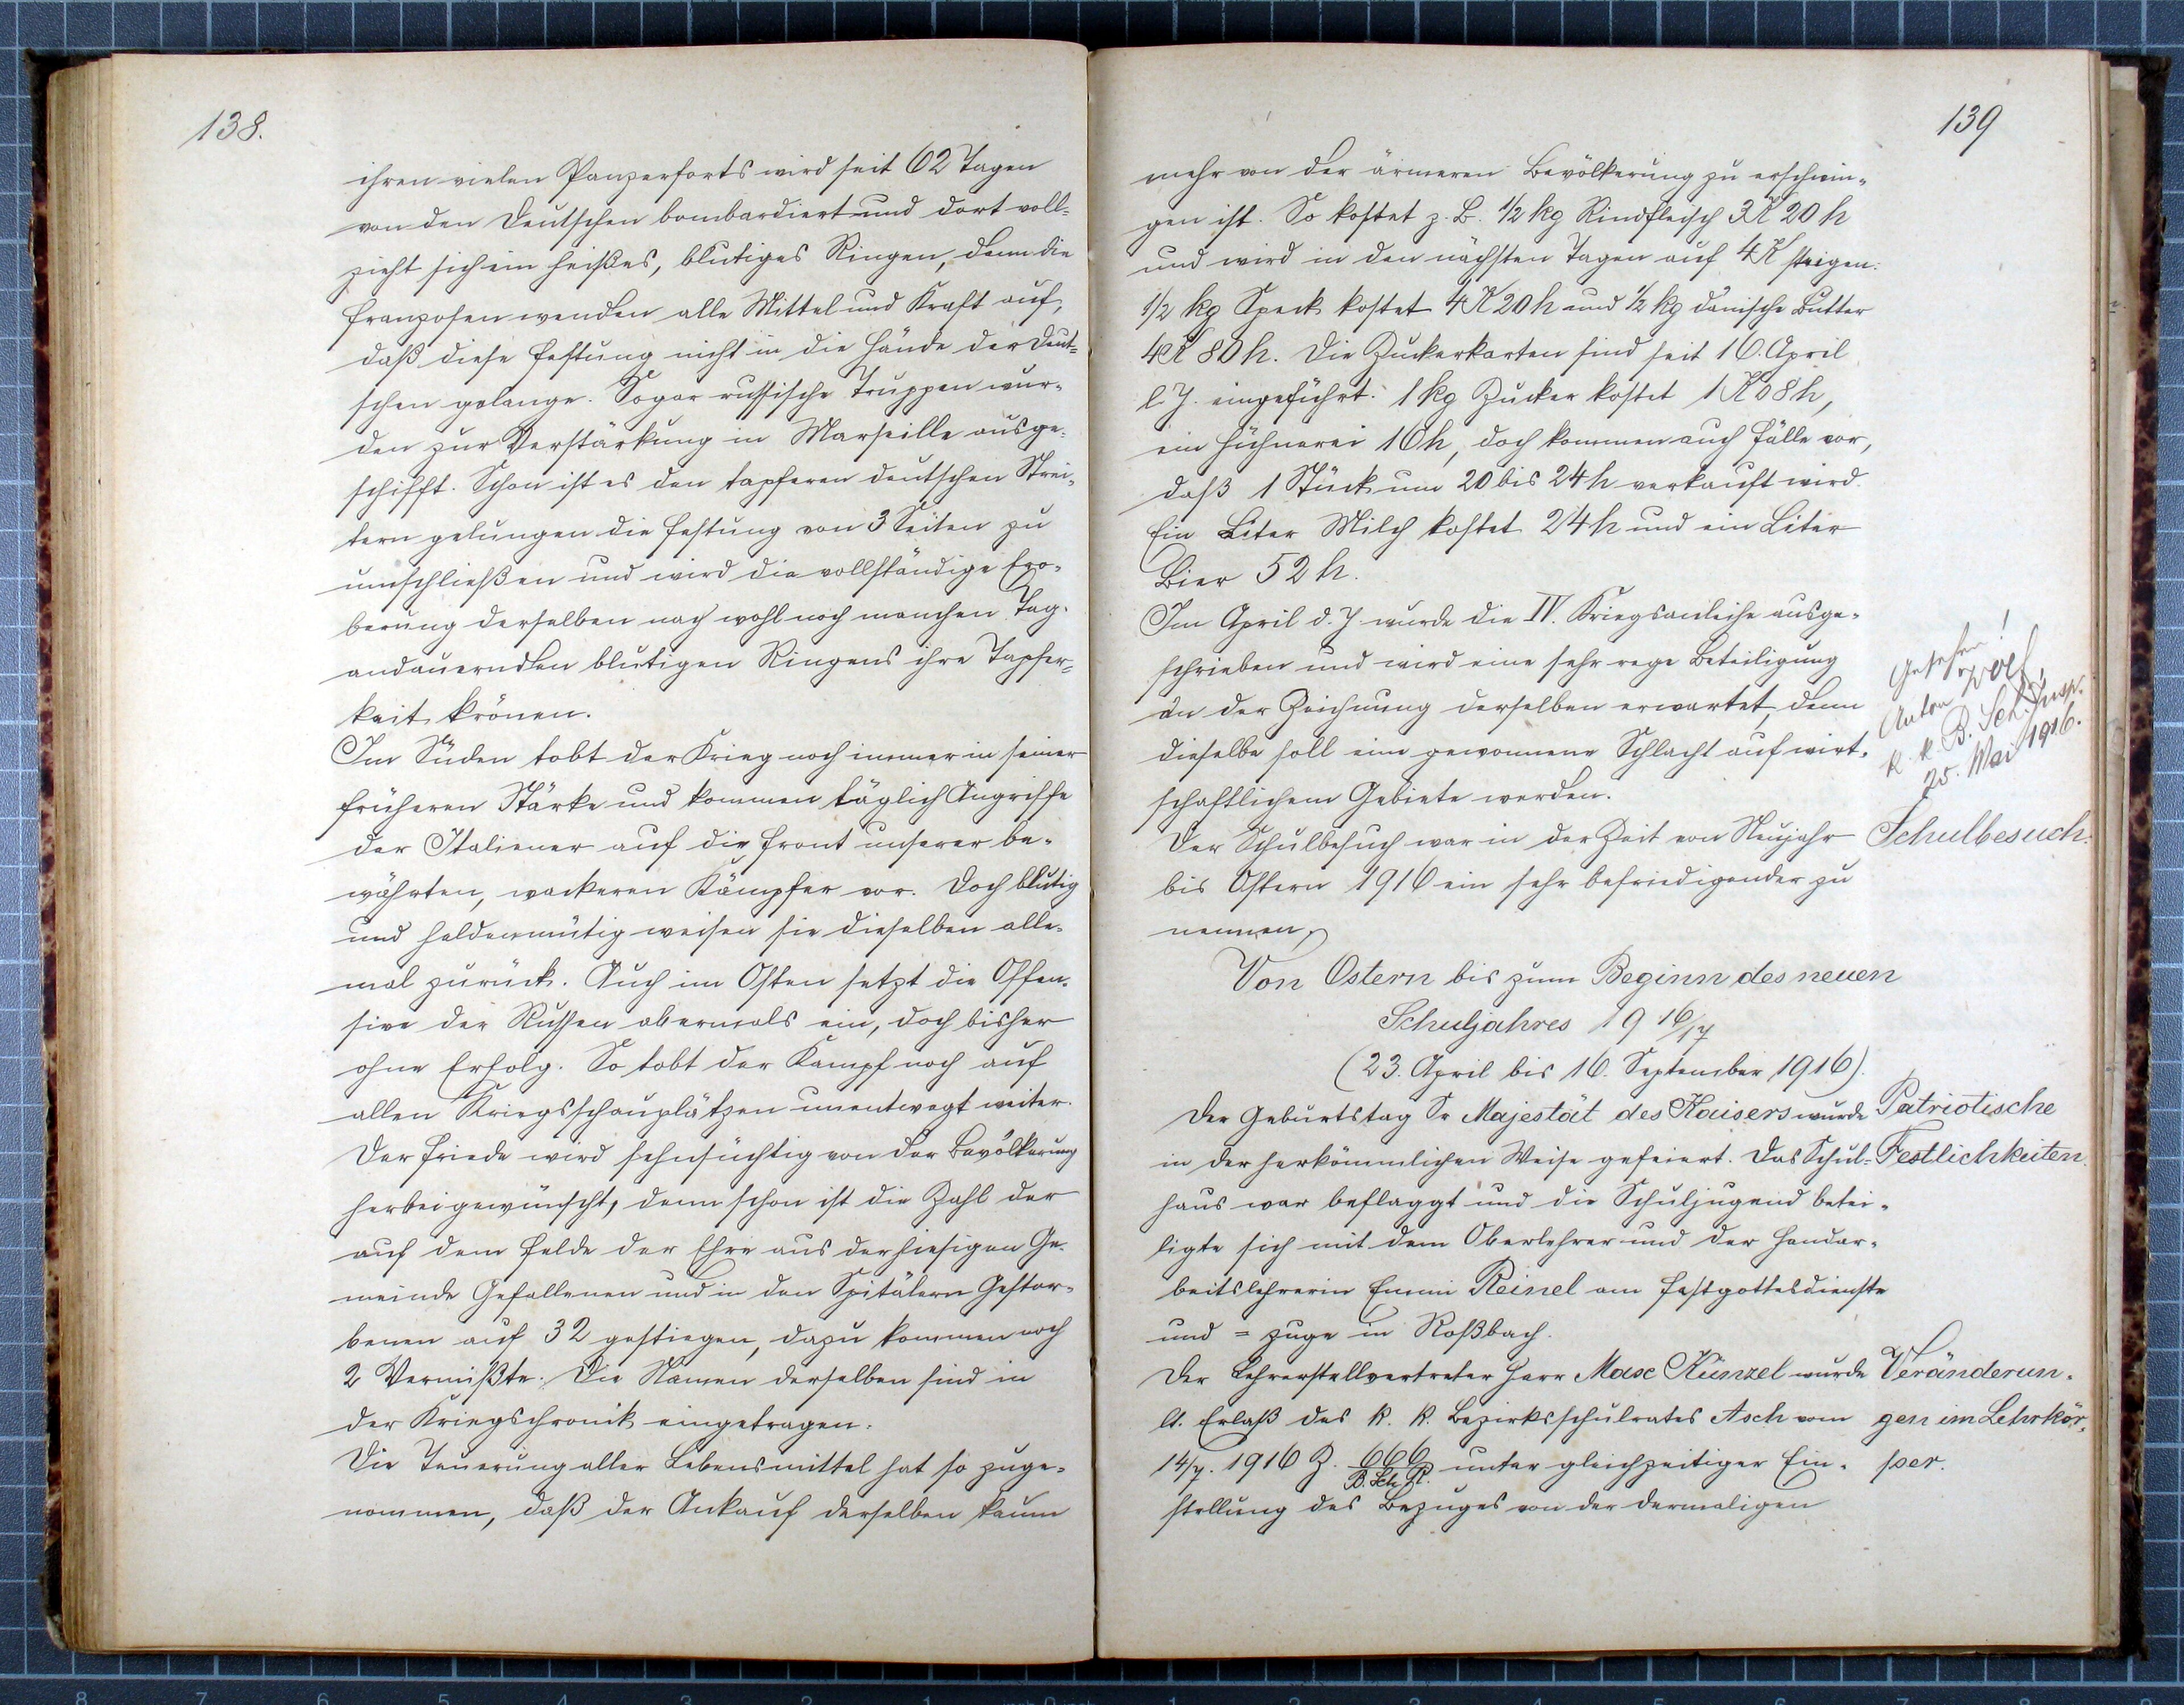 138.
ihren vielen Panzerforts wird seit 62 Tagen
von den Deutschen bombardiert und dort voll-
zieht sich ein heißes, blutiges Ringen, denn die
Franzosen wenden alle Mittel und Kraft auf,
daß diese Festung nicht in die Hände der Deut-
schen gelange. Sogar russische Truppen wur-
den zur Verstärkung in Marseille ausge-
schifft. Schon ist es den tapferen deutschen Strei-
tern gelungen die Festung von 3 Seiten zu
umschließen und wird die vollständige Ero-
berung derselben nach wohl noch manchen Tag
andauernden blutigen Ringens ihre Tapfer-
keit krönen.
Im Süden tobt der Krieg noch immer in seiner
früheren Stärke und kommen täglich Angriffe
der Italiener auf die Front unserer be-
währten, wackeren Kämpfer vor. Doch blutig
und heldenmütig weisen sie dieselben alle-
mal zurück. Auch im Osten setzt die Offen-
sive der Russen abermals ein, doch bisher
ohne Erfolg. So tobt der Kampf noch auf
allen Kriegsschauplätzen unentwegt weiter.
Der Friede wird sehnsüchtig von der Bevölkerung
herbeigewünscht, denn schon ist die Zahl der
auf dem Felde der Ehre aus der hiesigen Ge-
meinde Gefallenen und in den Spitälern Gestor-
benen auf 32 gestiegen, dazu kommen noch
2 Vermißte. Die Namen derselben sind in
der Kriegschronik eingetragen.
Die Teuerung aller Lebensmittel hat so zuge-
nommen, daß der Ankauf derselben kaum
139
mehr von der ärmeren Bevölkerung zu erschwin-
gen ist. So kostet z. B. 1/2 kg Rindfleisch 3 K 20 h
und wird in den nächsten Tagen auf 4 K steigen.
1/2 kg Speck kostet 4 K 20 h und 1/2 kg dänische Butter
4 K 80 h. Die Zuckerkarten sind seit 16. April
l. J. eingeführt. 1 kg Zucker kostet 1 K 08 h,
ein Hühnerei 16 h, doch kommen auch Fälle vor,
daß 1 Stück um 20 bis 24 h verkauft wird.
Ein Liter Milch kostet 24 h und ein Liter
Bier 52 h.
Im April d. J. wurde die IV. Kriegsanleihe ausge-
schrieben und wird eine sehr rege Beteiligung
an der Zeichnung derselben erwartet, denn
dieselbe soll eine gewonnene Schlacht auf wirt-
schaftlichem Gebiete werden.
Gesehen!
Anton
k. k. B. Sch. Insp.
25. Mai 1916.
Der Schulbesuch war in der Zeit von Neujahr Schulbesuch.
bis Ostern 1916 ein sehr befriedigender zu
nennen.
Von Ostern bis zum Beginn des neuen
Schuljahres 1916/17
(23. April bis 16. September 1916).
Der Geburtstag Sr Majestät des Kaisers wurde Patriotische
in der herkömmlichen Weise gefeiert. Das Schul- Festlichkeiten.
haus war beflaggt und die Schuljugend betei-
ligte sich mit dem Oberlehrer und der Handar-
beitslehrerin Emmi Reinel am Festgottesdienste
und = zuge in Roßbach.
Der Lehrerstellvertreter Herr Max Künzel wurde Veränderun-
lt. Erlaß des k. k. Bezirksschulrates Asch vom gen im Lehrkör-
14/7. 1916 Z. 666/B. Sch. R. unter gleichzeitiger Ein- per.
stellung des Bezuges von der dermaligen
8 7 6 5 4 3 2 1 inch 0 inch 1 2 3 4 5 6 7 8 9